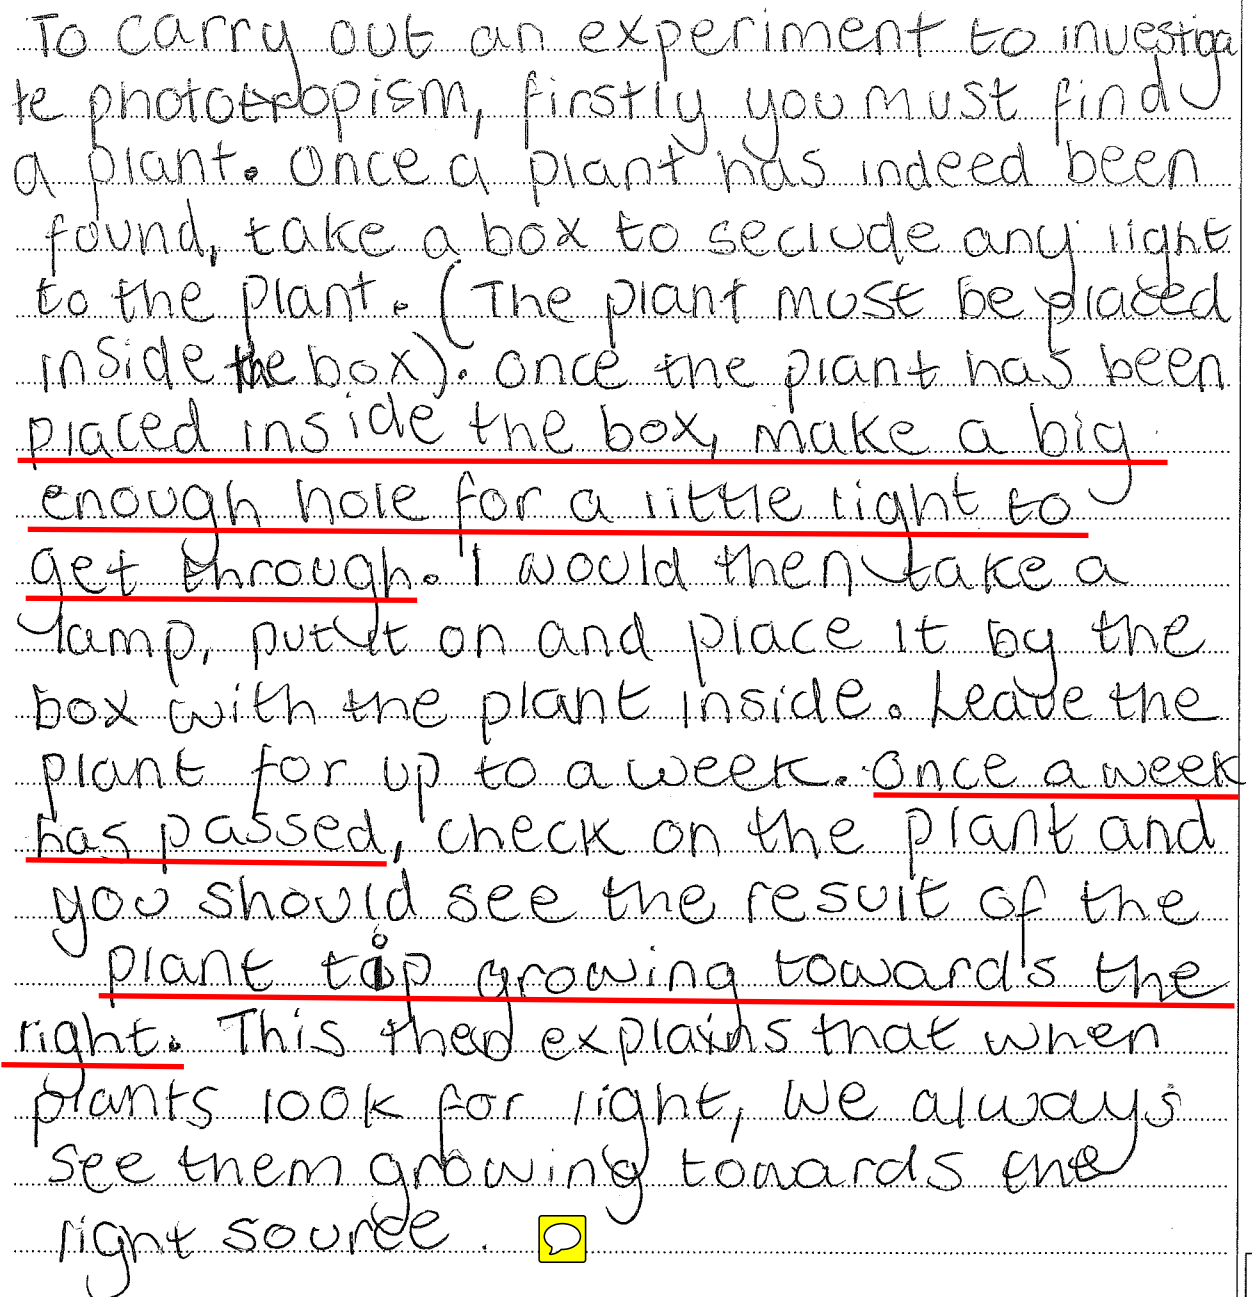 To carry out an experiment to investiga
te phototropism, firstly you must find
a plant. Once a plant has indeed been
found, take a box to seclude any light
to the plant. (The plant must be placed
inside the box). Once the plant has been
placed inside the box, make a big
enough hole for a little light to
get through. I would then take a
lamp, put it on and place it by the
box with the plant inside. Leave the
plant for up to a week. Once a week
has passed, check on the plant and
you should see the result of the
plant tip growing towards the
light. This then explains that when
plants look for light, we always
see them growing towards the
light source.